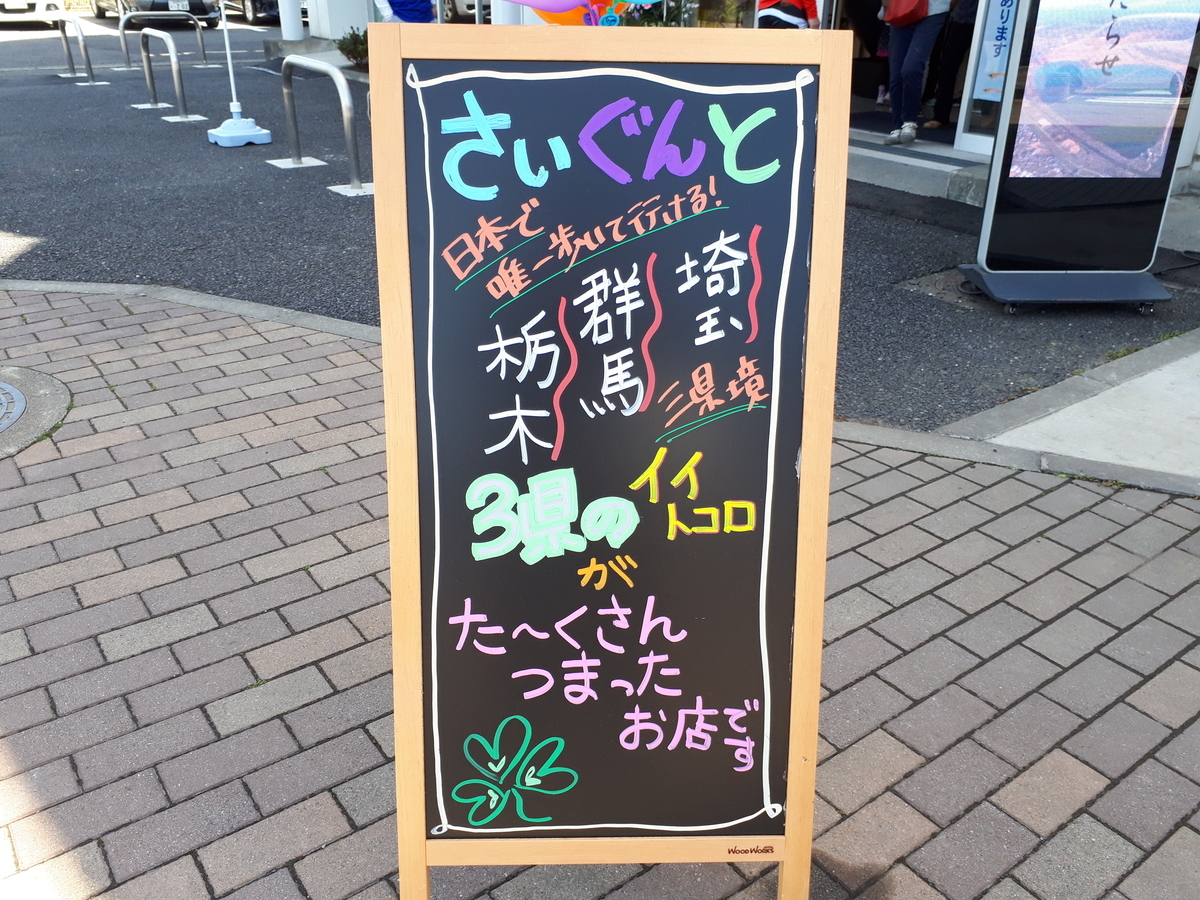 さいぐんと
日本で
唯一歩いて行ける!
埼玉
群馬
栃木
三県境
3県の
イイ
トコロ
が
た〜くさん
つまった
お店です
WOODWORKS
あります
たらせ